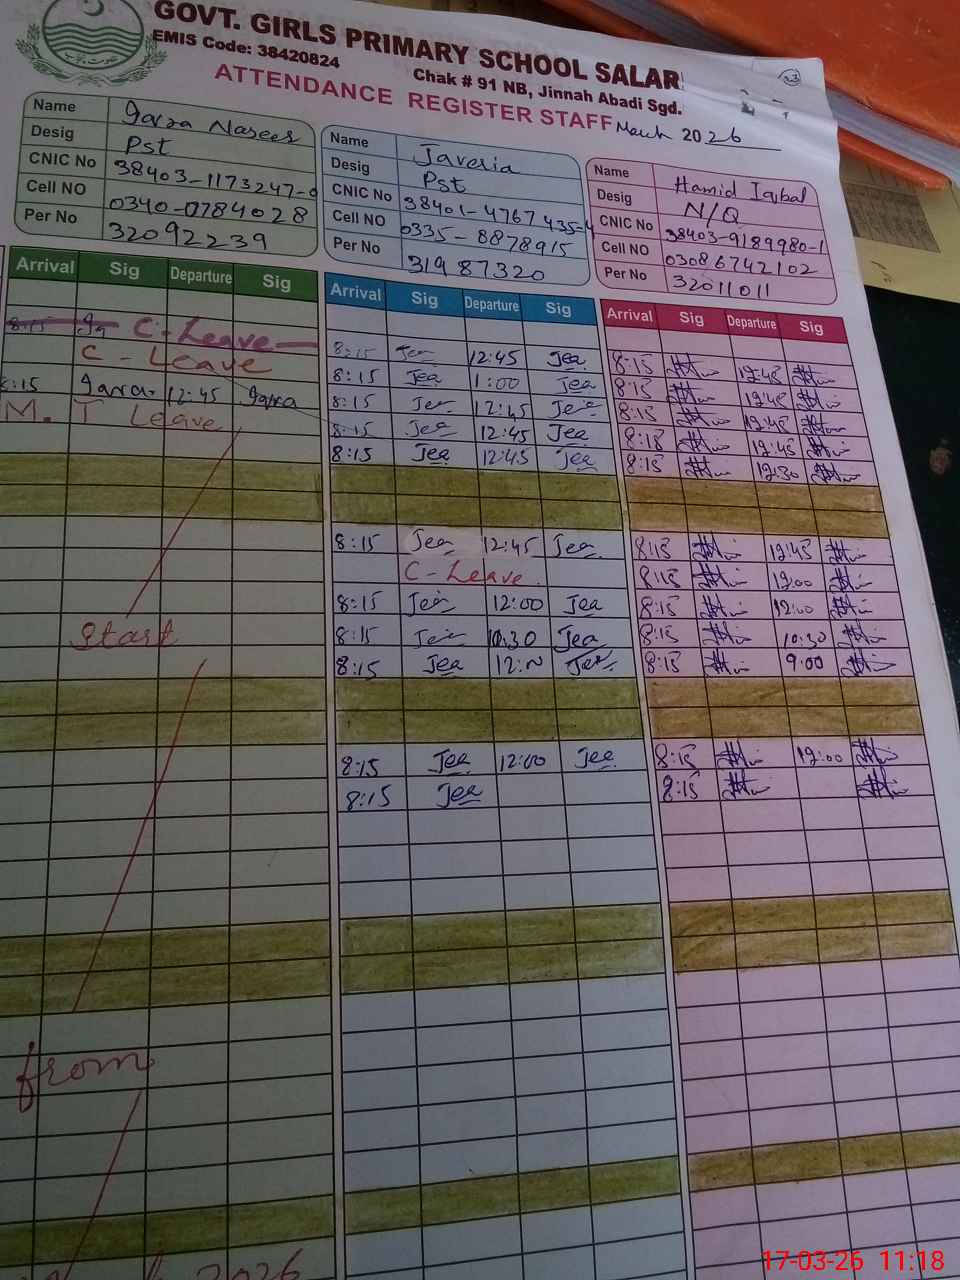 GOVT. GIRLS PRIMARY SCHOOL SALAR
EMIS Code: 38420824
Chak # 91 NB, Jinnah Abadi Sgd.
ATTENDANCE REGISTER STAFF March 2026
Name
Desig Pst
CNIC No 38403-1173247-0
Cell NO 0340-0784028
Per No 32092239
Name Javeria
Desig Pst
CNIC No 38401-4767435-4
Cell NO 0335-8878915
Per No 31987320
Name Hamid Iqbal
Desig N/Q
CNIC No 38403-9189980-1
Cell NO 03086742102
Per No 32011011
Arrival Sig Departure Sig
8:15 C-Leave
C-Leave
8:15 12:45
M.T Leave
Start
from
2026
Arrival Sig Departure Sig
8:15 Jea 12:45 Jea
8:15 Jea 1:00 Jea
8:15 Jea 12:45 Jea
8:15 Jea 12:45 Jea
8:15 Jea 12:45 Jea
8:15 Jea 12:45 Jea
C-Leave.
8:15 Jea 12:00 Jea
8:15 Jea 10:30 Jea
8:15 Jea 12:00 Jea
8:15 Jea 12:00 Jea
8:15 Jea
Arrival Sig Departure Sig
8:15 12:45
8:15 12:45
8:15 12:45
8:15 12:45
8:15 12:30
8:15 12:45
8:15 12:00
8:15 12:00
8:15 10:30
8:15 9:00
8:15 12:00
8:15
17-03-26 11:18